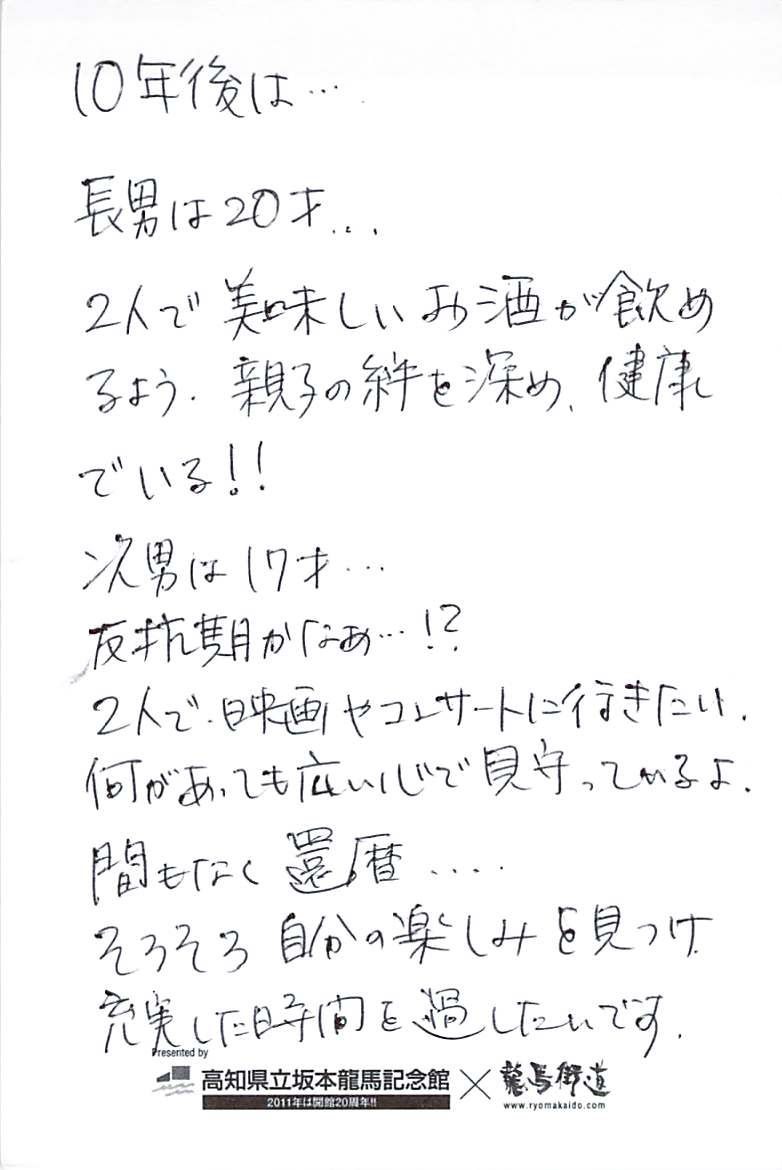 10年後は…
長男は20才...
2人で美味しいお酒が飲め
るよう.親子の絆を深め、健康
でいる!!
次男は17才…
反抗期かなぁ…!?
2人で.映画やコンサートに行きたい.
何があっても広い心で見守っているよ.
間もなく還暦....
そろそろ自分の楽しみを見つけ
充実した時間を過したいです.
Presented by
高知県立坂本龍馬記念館×龍馬街道
2011年は開館20周年!!
www.ryomakaido.com